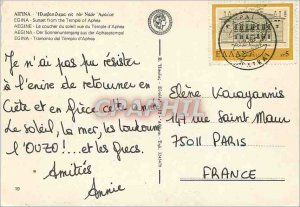 ΑΙΓΙΝΑ
EGINA - Sunset from the Temple of Aphea
AEGINE - Le coucher du soleil vue du Temple d'Aphea
AEGINA - Der Sonnenuntergang aus der Aphaiatempel
EGINA - Tramonto del Tempio d'Aphea
Je n'ai pas pu résister
à l'envie de retourner en
Crète et finir cette
Le soleil, la mer, les loukoum
l'OUZO!... et les Grecs.
Amitiés
Annie
10
ΕΛΛΑΣ
Elène Karayannis
147 rue Saint Maur
75011 PARIS
FRANCE